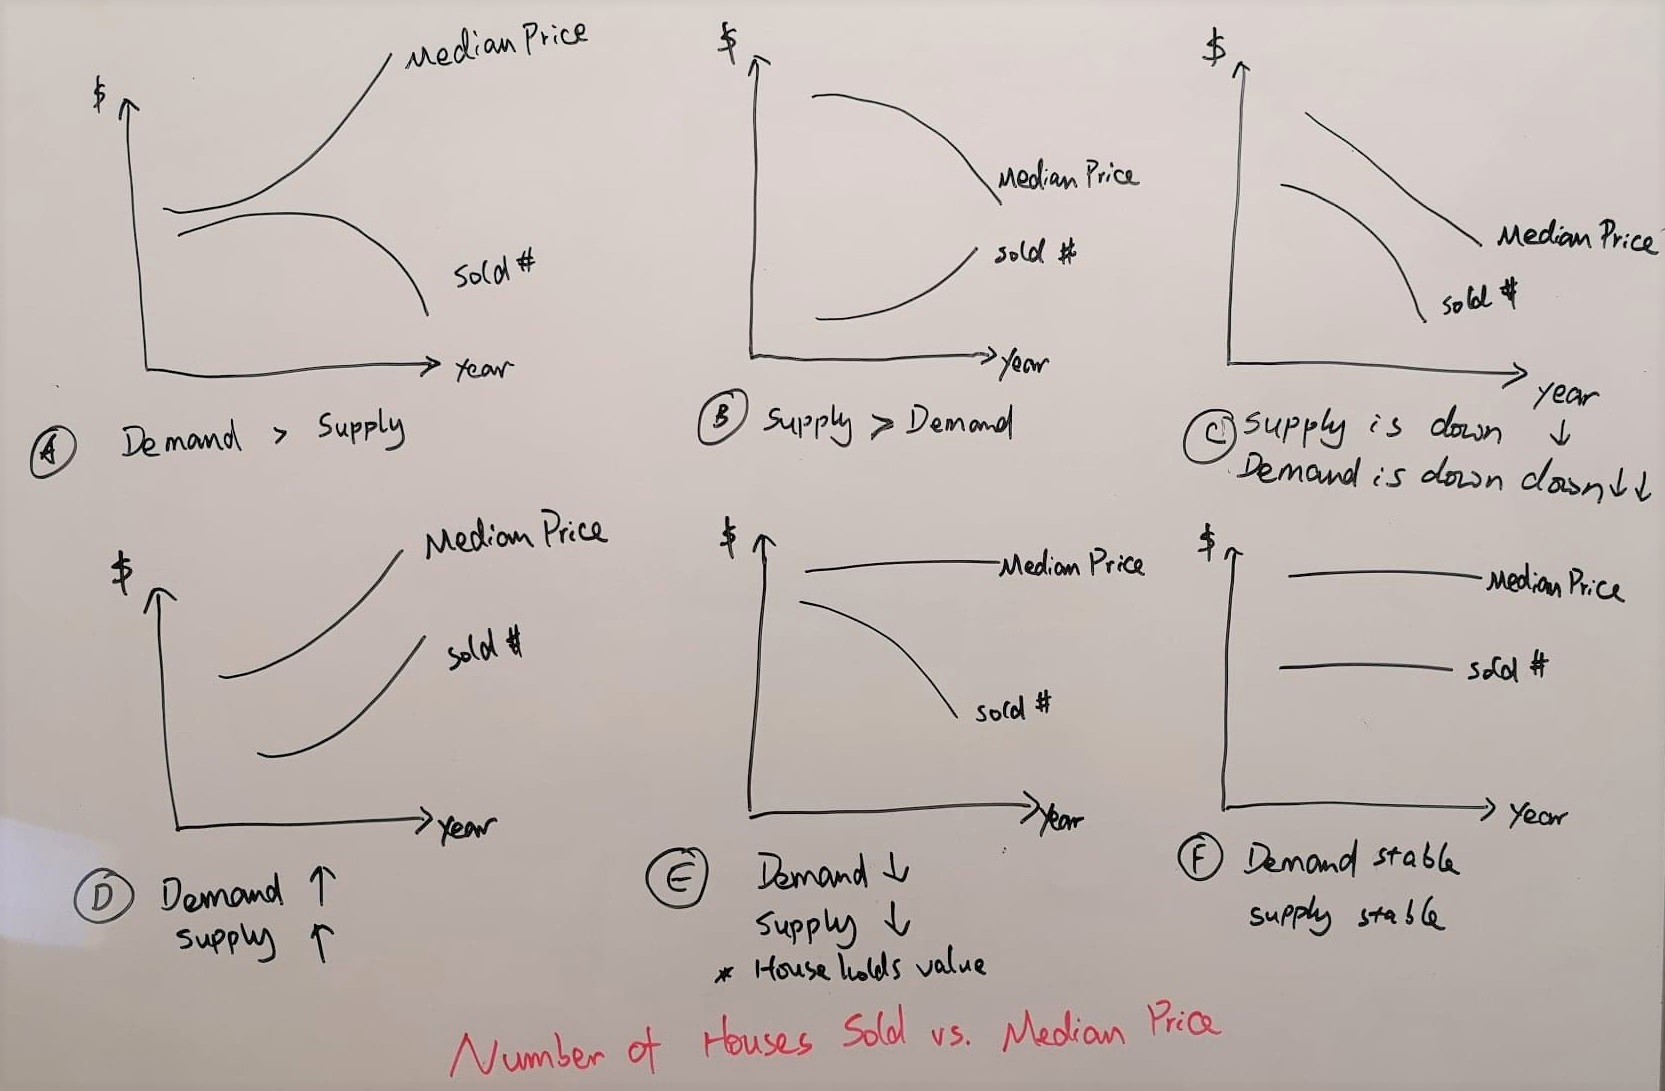 $
Median Price
sold #
Year
A Demand > Supply
$
Median Price
sold #
Year
B Supply > Demand
$
Median Price
sold #
Year
C Supply is down ↓
Demand is down down ↓↓
$
Median Price
sold #
Year
D Demand ↑
supply ↑
$
Median Price
sold #
Year
E Demand ↓
supply ↓
* House holds value
$
Median Price
sold #
Year
F Demand stable
supply stable
Number of Houses Sold vs. Median Price